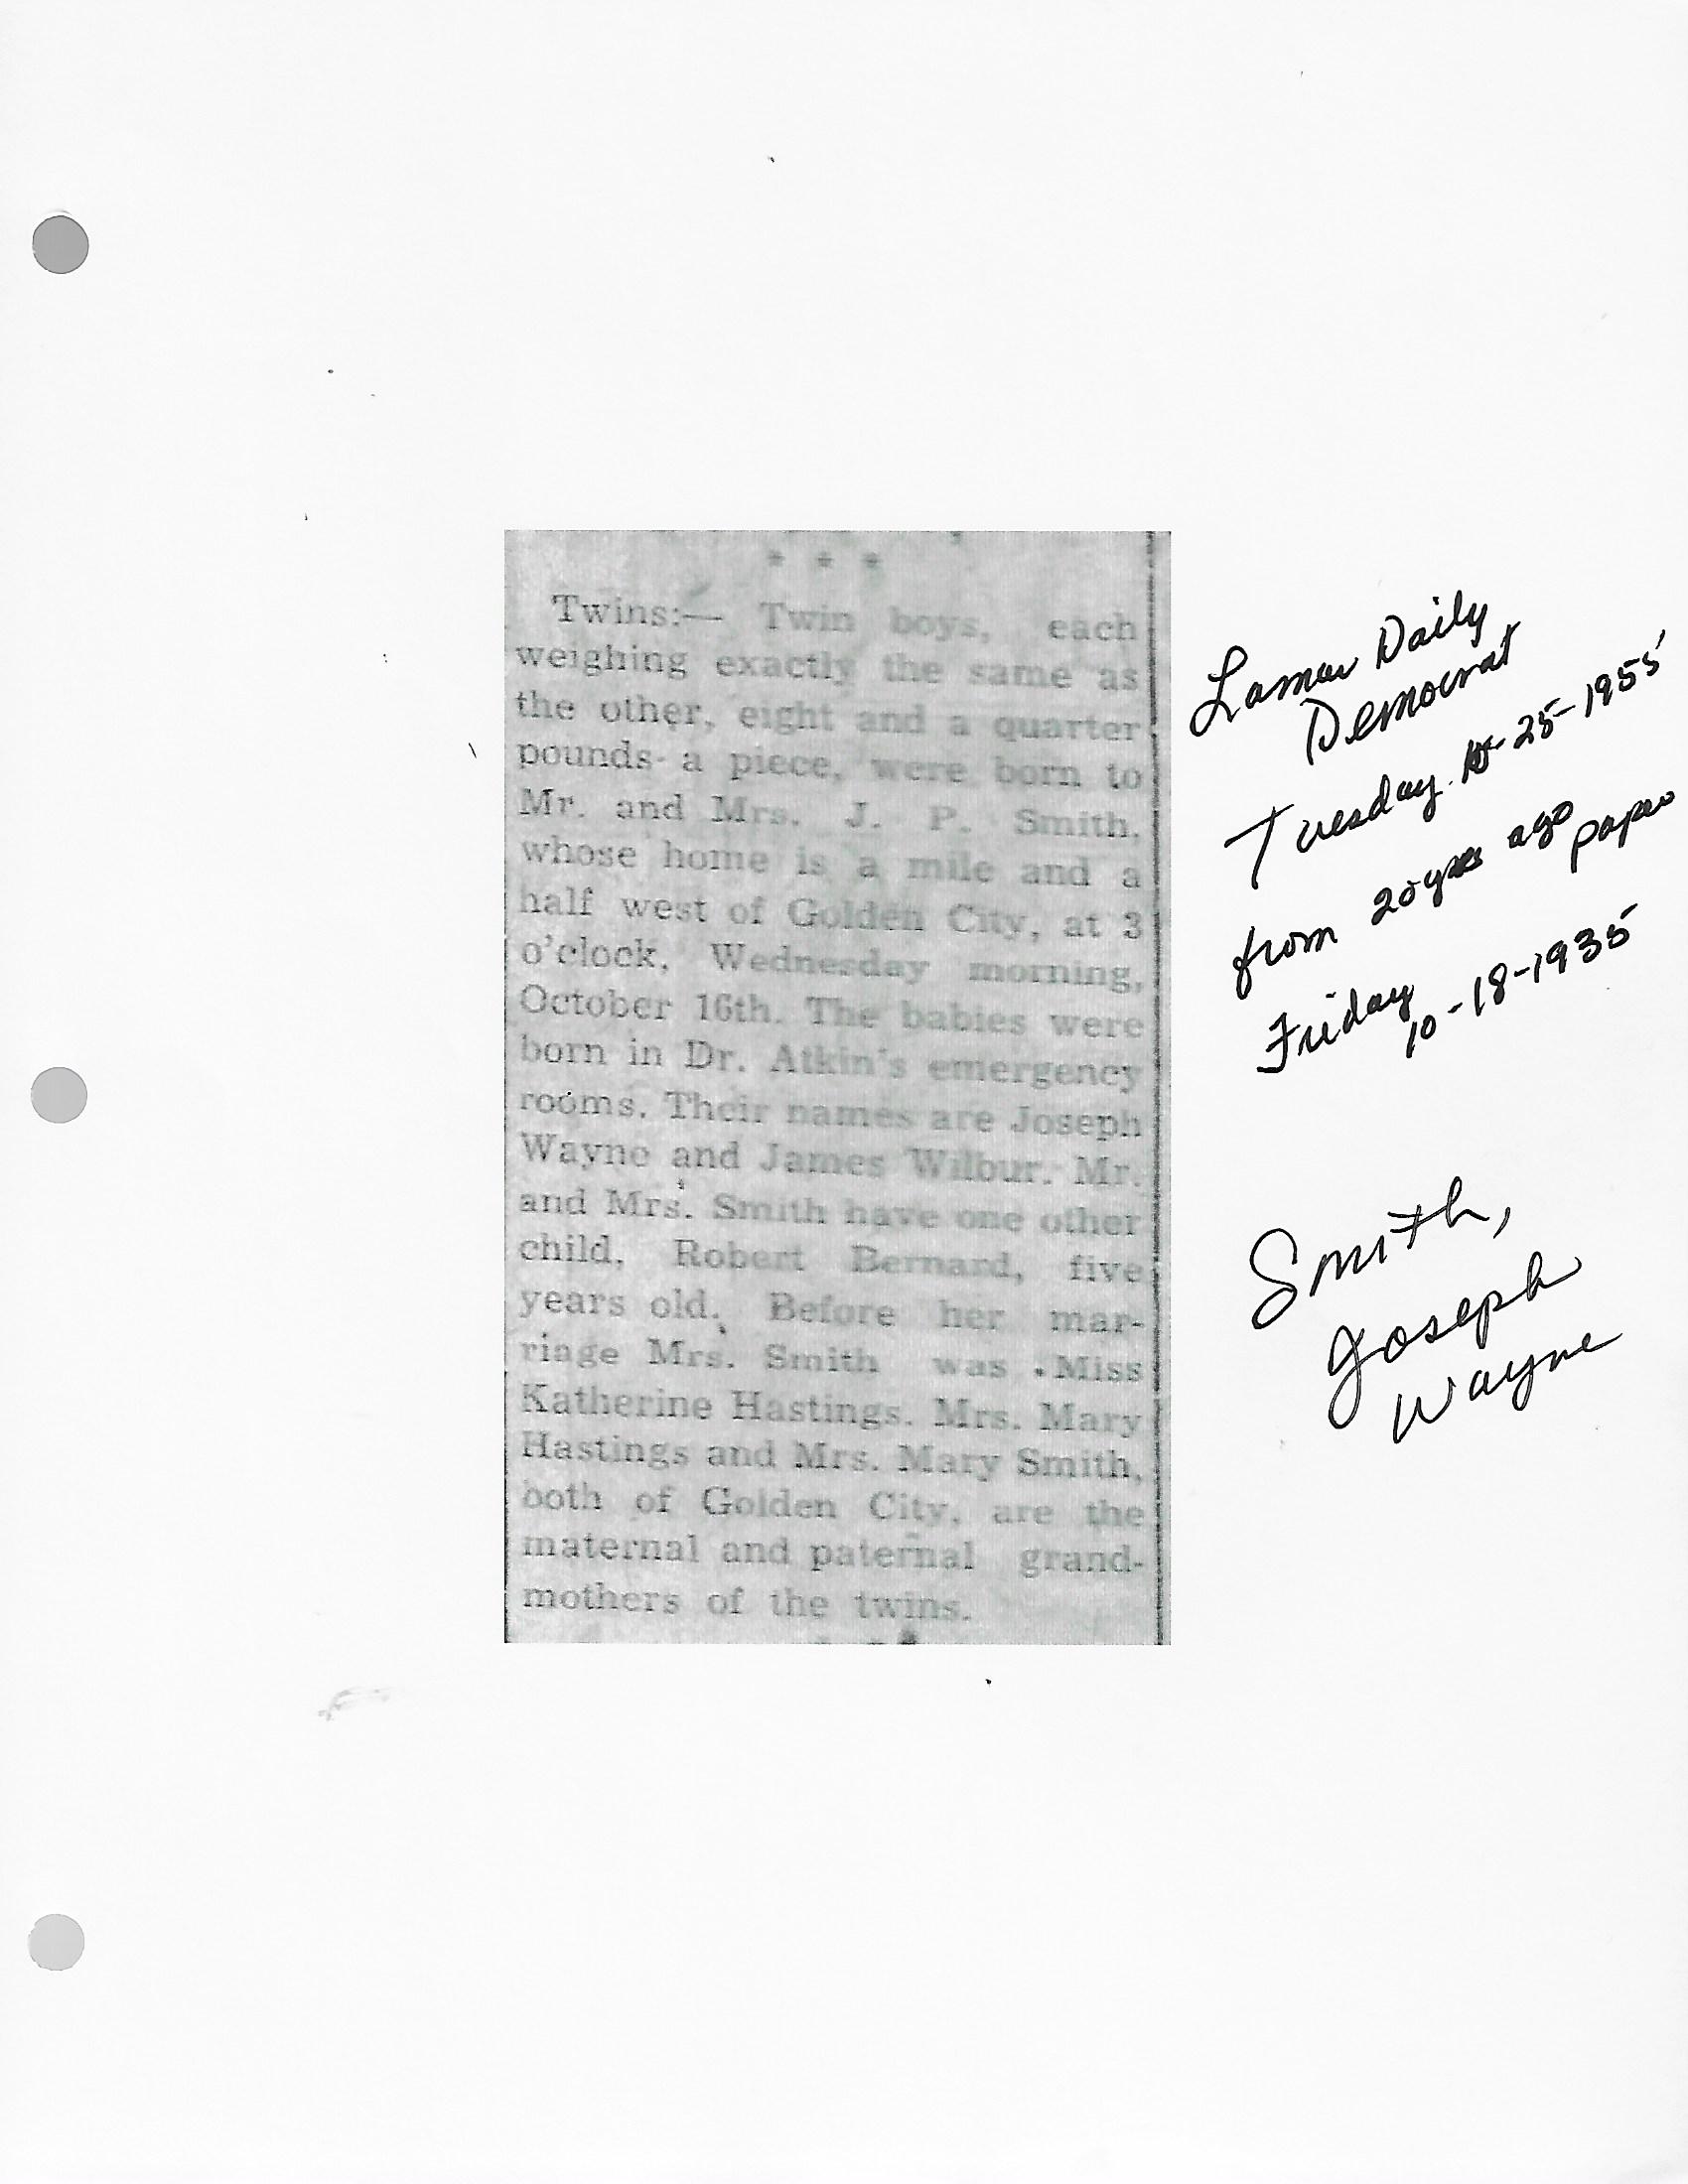 * * *
Twins:— Twin boys, each
weighing exactly the same as
the other, eight and a quarter
pounds- a piece, were born to
Mr. and Mrs. J. P. Smith,
whose home is a mile and a
half west of Golden City, at 3
o'clock, Wednesday morning,
October 16th. The babies were
born in Dr. Atkin's emergency
rooms. Their names are Joseph
Wayne and James Wilbur. Mr.
and Mrs. Smith have one other
child, Robert Bernard, five
years old. Before her mar-
riage Mrs. Smith was Miss
Katherine Hastings. Mrs. Mary
Hastings and Mrs. Mary Smith,
both of Golden City, are the
maternal and paternal grand-
mothers of the twins.
Lamar Daily
Democrat
Tuesday 10-25-1955
from 20 yrs ago
paper
Friday
10-18-1935
Smith,
Joseph
Wayne